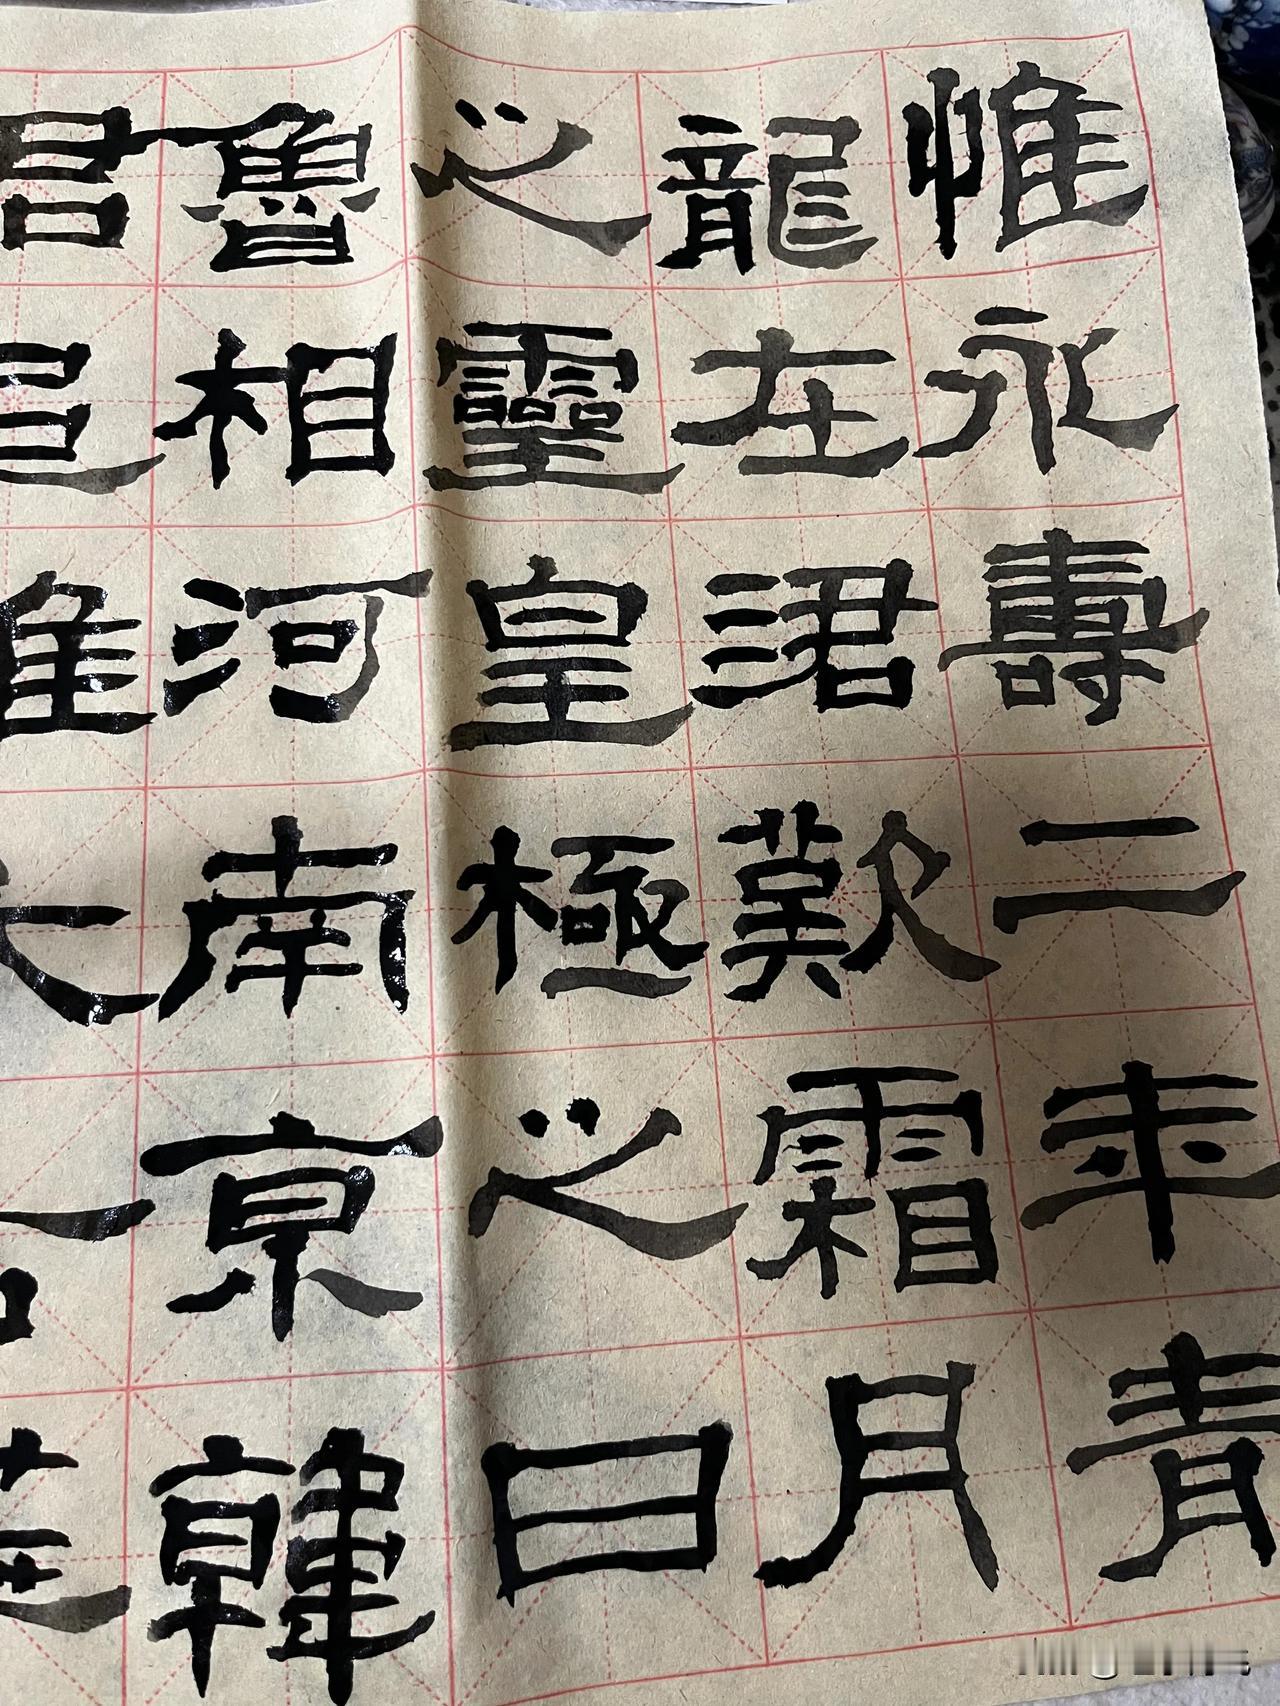 惟永壽二年青
龍在涒歎霜月
之靈皇極之日
魯相河南京韓
君